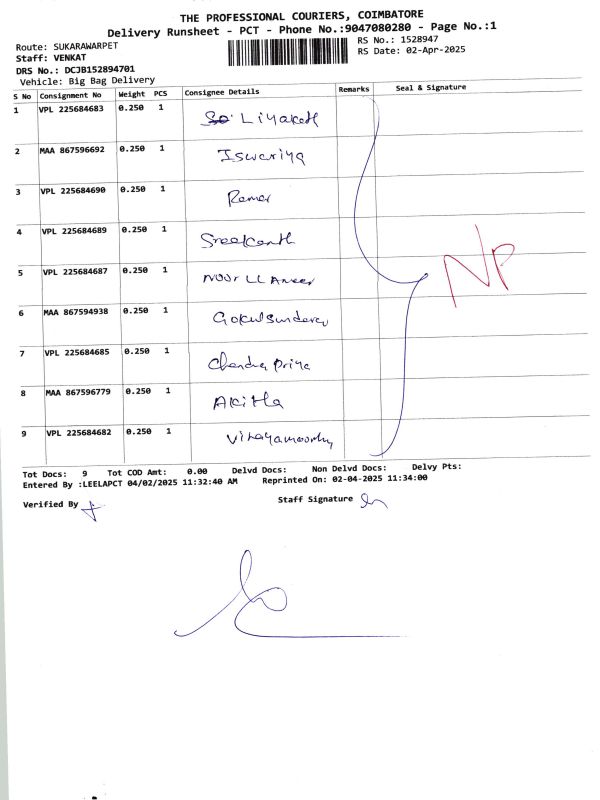 THE PROFESSIONAL COURIERS, COIMBATORE
Delivery Runsheet - PCT - Phone No.:9047080280 - Page No.:1
Route: SUKARAWARPET
RS No.: 1528947
Staff: VENKAT
RS Date: 02-Apr-2025
DRS No.: DCJB152894701
Vehicle: Big Bag Delivery
S No Consignment No Weight PCS Consignee Details Remarks Seal & Signature
1 VPL 225684683 0.250 1 Liyakath
2 MAA 867596692 0.250 1 Iswariya
3 VPL 225684690 0.250 1 Ramar
4 VPL 225684689 0.250 1 Sreekanth
5 VPL 225684687 0.250 1 Noor Ll Ameer
6 MAA 867594938 0.250 1 Gokulsundarar
7 VPL 225684685 0.250 1 Chandra Priya
8 MAA 867596779 0.250 1
9 VPL 225684682 0.250 1
NP
Tot Docs: 9 Tot COD Amt: 0.00 Delvd Docs: Non Delvd Docs: Delvy Pts:
Entered By :LEELAPCT 04/02/2025 11:32:40 AM Reprinted On: 02-04-2025 11:34:00
Verified By Staff Signature